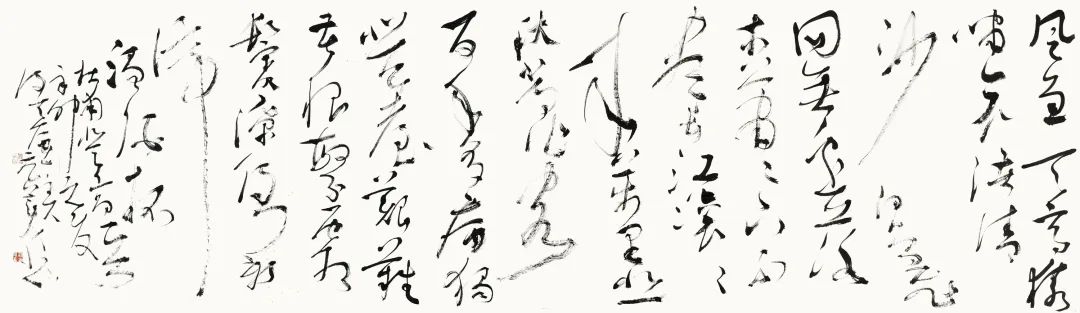 風急天高猿
嘯哀渚清
沙白鳥飛
回無邊落
木蕭々下不
盡長江滚々
來萬里悲
秋常作客
百年多病獨
登臺艱難
苦恨繁霜
鬢潦倒新
停
濁酒杯
杜甫登高